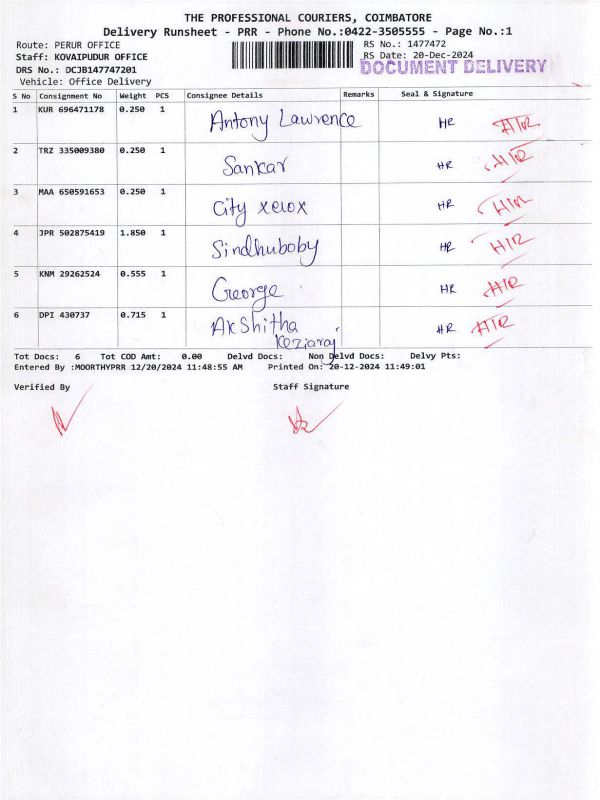 THE PROFESSIONAL COURIERS, COIMBATORE
Delivery Runsheet - PRR - Phone No.:0422-3505555 - Page No.:1
Route: PERUR OFFICE RS No.: 1477472
Staff: KOVAIPUDUR OFFICE RS Date: 20-Dec-2024
DRS No.: DCJB147747201 DOCUMENT DELIVERY
Vehicle: Office Delivery
S No Consignment No Weight PCS Consignee Details Remarks Seal & Signature
1 KUR 696471178 0.250 1 Antony Lawrence HR HR
2 TRZ 335009380 0.250 1 Sankar HR HR
3 MAA 650591653 0.250 1 City xerox HR HR
4 JPR 502875419 1.850 1 Sindhuboby HR HR
5 KNM 29262524 0.555 1 George HR HR
6 DPI 430737 0.715 1 Akshitha HR HR
Keziaraj
Tot Docs: 6 Tot COD Amt: 0.00 Delvd Docs: Non Delvd Docs: Delvy Pts:
Entered By :MOORTHYPRR 12/20/2024 11:48:55 AM Printed On: 20-12-2024 11:49:01
Verified By Staff Signature